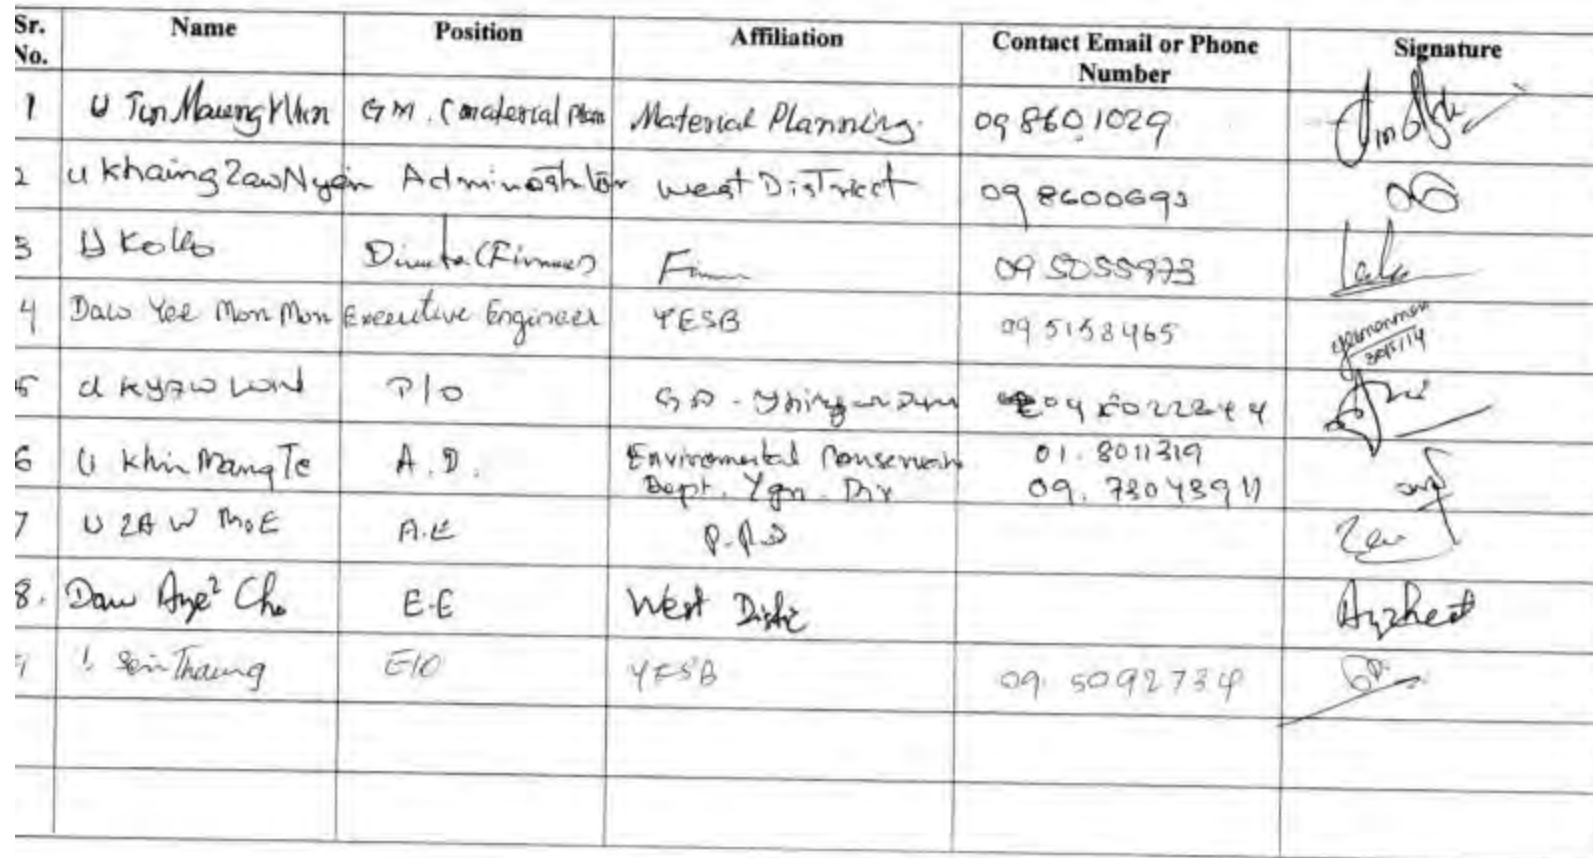 Sr. No. Name Position Affiliation Contact Email or Phone Number Signature
1 U Tun Maung Win G.M. (material plan Material Planning. 09 8601029
2 U Khaing Zaw Nyan West District 09 8600693
3 U Ko Director (Finance) 09 5055973
4 Daw Yee Mon Mon Executive Engineer YESB 09 5158465 yeemonmon
30/5/14
5 U Kyaw Win P/O
6 U Khin Mang Te A.D. Enviromental 01.8011319
Dept. Ygn. Div 09.73043911
7 U ZAW MOE A.E Zaw
8. Daw Aye² Cho E.E West
9 Sein Thaung E/O YESB 09.5092734